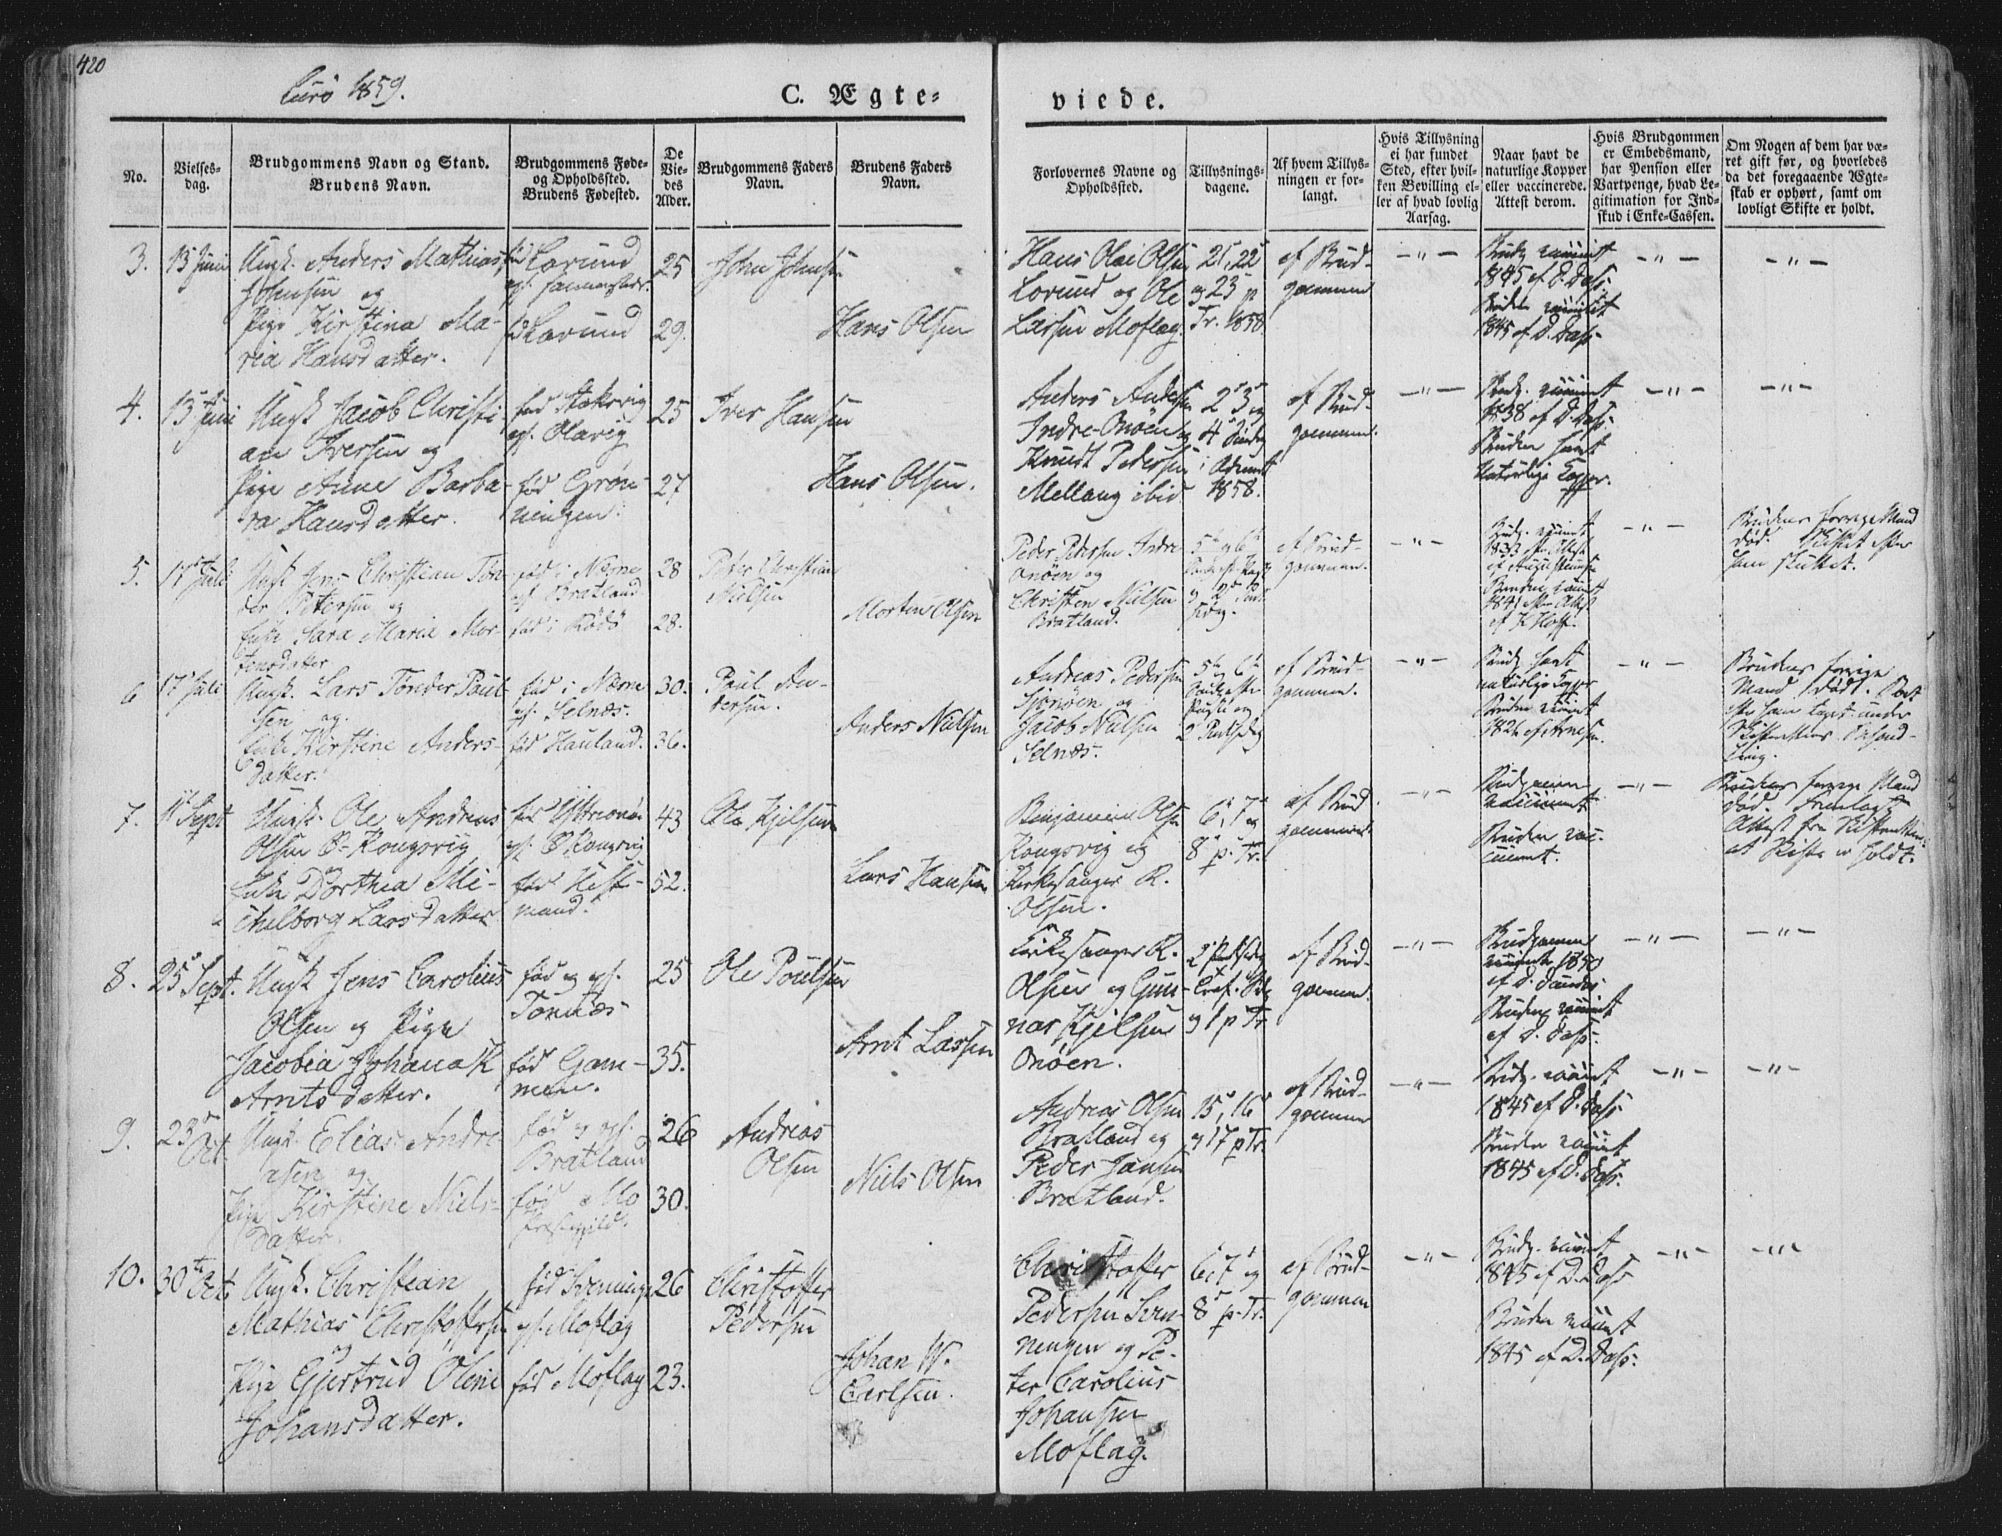 420
Lurö 1859.
C. Ægte-
viede.
No.
Vielses-
dag.
Brudgommens Navn og Stand.
Brudens Navn.
Brudgommens Føde-
og Opholdssted.
Brudens Fødested.
De
Vie-
des
Alder.
Brudgommens Faders
Navn.
Brudens Faders
Navn.
Forlovernes Navne og
Opholdssted.
Tillysnings-
dagene.
Af hvem Tillys-
ningen er for-
langt.
Hvis Tillysning
ei har fundet
Sted, efter hvil-
ken Bevilling el-
ler af hvad lovlig
Aarsag.
Naar havt de
naturlige Kopper
eller vaccinerede.
Attest derom.
Hvis Brudgommen
er Embedsmand,
har Pension eller
Vartpenge, hvad Le-
gitimation for Ind-
skud i Enke-Cassen.
Om Nogen af dem har væ-
ret gift før, og hvorledes
da det foregaaende Ægte-
skab er ophørt, samt om
lovligt Skifte er holdt.
3.
13 Juni
Ungk. Anders Mathias
Johnsen og
Pige Kirstina Ma-
ria Hansdatter.
fød Lovund
fød Lovund
25
29.
John Johnsen
Hans Olsen
Hans Olai Olsen
Lovund og Ole
Larsen Moflag.
21, 22
og 23 p
Tr. 1858
af Brud-
gommen
- " -
Brudg. vaccint
1845 af D. Dass.
Bruden vaccinet
1845 af D. Dass.
- " -
- " -
4.
13 Juni
Ungk Jacob Christi-
an Iversen og
Pige Anne Barba-
ra Hansdatter.
fød Stokvig
op. Olavig
fød Grøn-
ningen.
25
27
Iver Hansen
Hans Olsen.
Anders Andersen
Indre-Onöen og
Knudt Pedersen
Mellang ibid
2 3 og
4 Sündag
i Advent
1858.
af Brud-
gommen.
- " -
Brudg. vaccint
1838 af D. Dass.
Bruden havt
Naturlige Kopper.
- " -
- " -
5.
17 Juli
Ungk Jens Christian Tön-
der Petersen og
Enke Sara Maria Mor-
tensdatter
fød i Næsne
op. Bratland
fød i Rödö
28
28.
Peter Christian
Nielsen
Morten Olsen
Peder Pedersen Indre
Onöen og
Christen Nielsen
Bratland.
af Brud-
gommen.
- " -
- " -
Brudens forrige Mand
død. Skiftet efter
ham sluttet.
6
17 Juli
Ungk. Lars Tönder Paul-
sen og
Enke Kirstine Anders-
datter.
fød i Næsne
op. Selnæs.
fød Hauland.
30.
36.
Paul An-
dersen.
Anders Nielsen
Andreas Pedersen
Sjonöen og
Jacob Nielsen
Selnæs.
af Brud-
gommen.
- " -
Brudg havt
naturlige Kopper
Bruden vaccint
- " -
Brudens forrige
Mand død. Boet
7.
11 Sept
Ungk. Ole Andreas
Olsen Ø-Kongsvig
Enke Dorthea Mi-
chelborg Larsdatter
fød Yttreonöen
op. Ø. Kongsvig
fød Hest-
mand.
43
52.
Ole Kjelsen
Lars Hansen
Benjamin Olsen
Kongsvig og
Kirkesanger R.
Olsen.
6, 7 og
8 p. Tr.
af Brud-
gommen.
- " -
Brudgommen
vaccineret.
Bruden vac-
cineret.
- " -
Brudens forrige Mand
død. Fremlagt
Attest fra Skifteretten
at Skifte er holdt.
8.
25 Sept.
Ungk Jens Carolius
Olsen og Pige
Jacobia Johana K
Arntsdatter.
fød og op.
Tonnæs
fød Gam-
men.
25
35.
Ole Poulsen
Arnt Larsen
Kirkesanger R.
Olsen og Gun-
nar Kjelsen
Onöen.
og 1 p Tr
af Brud-
gommen.
- " -
Brudgommen
vaccinet 1850
Bruden vaccint
af D. Dass.
- " -
- " -
9.
23
Oct.
Ungk. Elias Andre-
asen og
Pige Kirstine Niels-
datter.
fød og op.
Bratland
fød Mo
Præstegield.
26
30.
Andreas
Olsen
Niels Olsen
Andreas Olsen
Bratland og
Peder Jansen
Bratland.
15, 16
og 17 p Tr.
af Brud-
gommen
- " -
Brudg. vaccint
1845 af D. Dass.
Bruden vaccint
1845 af D. Dass.
- " -
- " -
10.
30 Oct
Ungk. Christian
Mathias Christoffersen
og
Pige Gjertrud Oline
Johansdatter.
op. Moflag
fød Moflag
26
23.
Christoffer
Pedersen
Johan W.
Carlsen.
Christoffer
Pedersen Sven-
ningen og Pe-
ter Carolius
Johansen
Moflag.
6, 7 og
8 p. Tr.
af Brud-
gommen
- " -
Brudg. vaccint
1845 af D. Dass
Bruden vaccint
1845 af D. Dass.
- " -
- " -